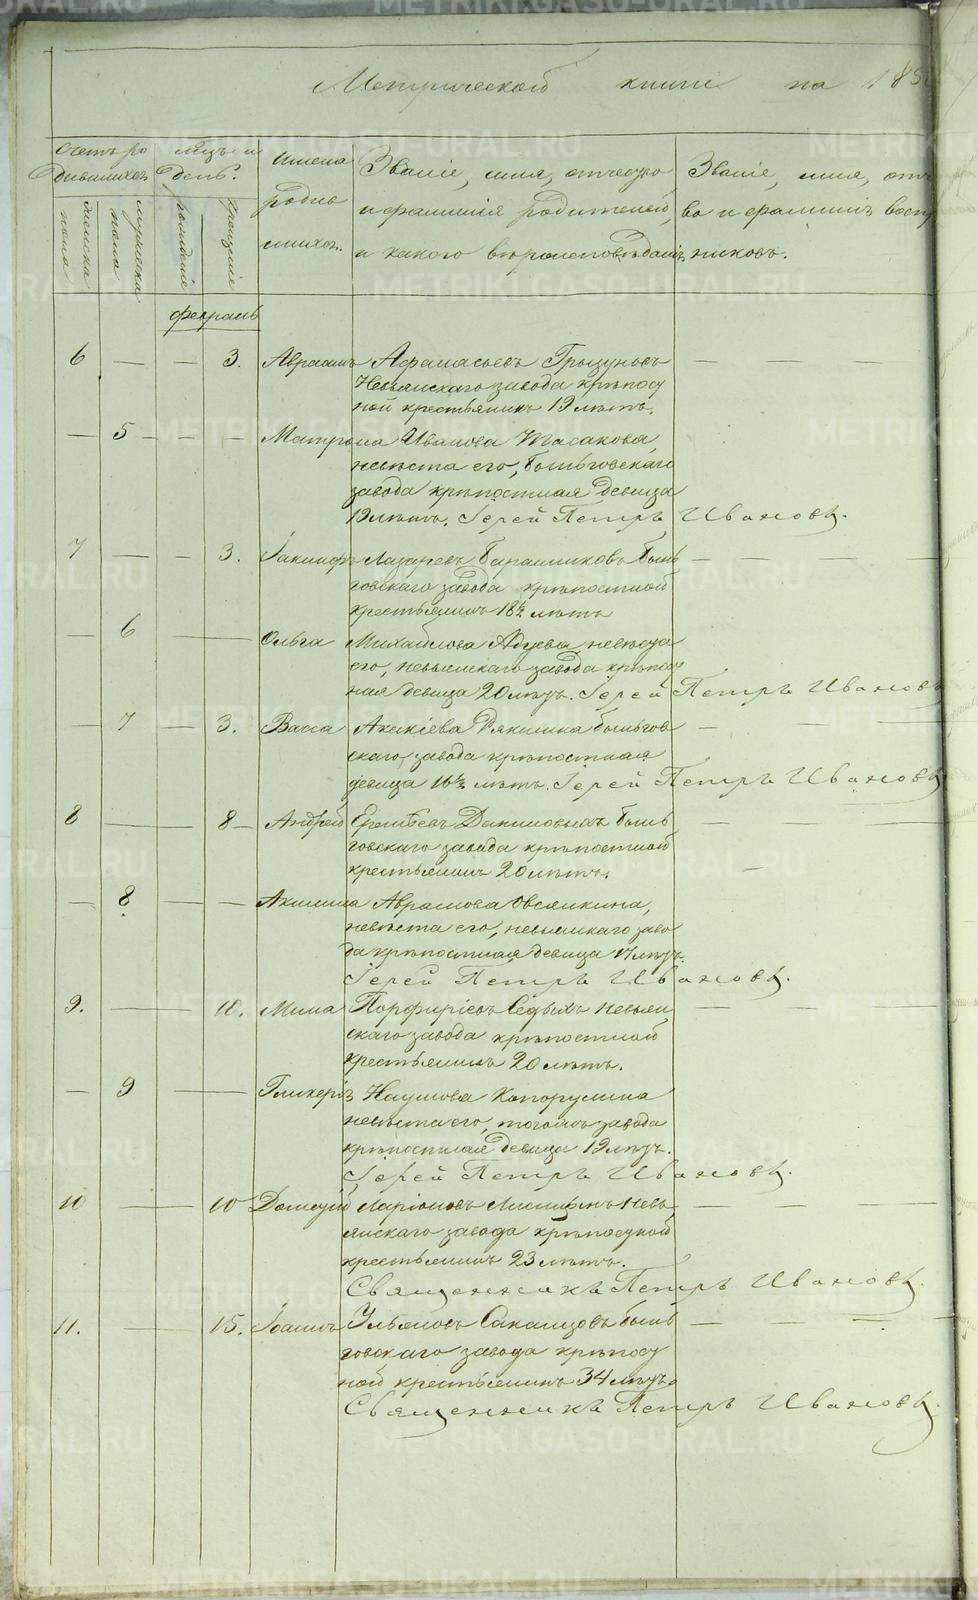 Метрической книги на 185
Счетъ ро
дившихся
Мѣсяцъ и
день.
Имена
родив
шихся.
Званіе, имя, отчество
и фамилія родителей,
и какого вѣроисповѣданія.
Званіе, имя, отче
во и фамилія воспр
никовъ.
женска
пола
мужеска
пола
рожденіе
крещеніе
февраль
6 — — 3. Авраамъ Афанасьевъ Грызуновъ —
Невьянскаго завода крѣпост
ной крестьянинъ 19 лѣтъ.
— 5 — — Матрона Иванова Тасакова,
невѣста его, быньговскаго
завода крѣпостная девица
19 лѣтъ. Іерей Петръ Ивановъ.
7 — — 3. Іакинфъ Лазаревъ Баранниковъ бынь —
говскаго завода крѣпостной
крестьянинъ 18½ лѣтъ
— 6 — Ольга Михайлова невѣста
его, невьянскаго завода крѣпост
ная девица 20 лѣтъ. Іерей Петръ Ивановъ
— 7 — 3. Васса Акакіева Рякшина быньгов —
скаго завода крѣпостная
девица 16½ лѣтъ. Іерей Петръ Ивановъ
8 — 8 — Андрей Еремѣевъ Даниловыхъ бынь —
говскаго завода крѣпостной
крестьянинъ 20 лѣтъ. —
— 8 — — Акилина Аврамова Овсянкина,
невѣста его, невьянскаго заво
да крѣпостная девица 17 лѣтъ.
Іерей Петръ Ивановъ.
9. — — 10. Мина Порфиріевъ Сѣдыхъ невьян —
скаго завода крѣпостной
крестьянинъ 20 лѣтъ.
— 9 — — Гликерія Наумова Копорулина
невѣста его, тогожъ завода
крѣпостная девица 19 лѣтъ.
Іерей Петръ Ивановъ.
10 — — 10 Дометій Ларіоновъ невь —
янскаго завода крѣпостной
крестьянинъ 23 лѣтъ.
Священникъ Петръ Ивановъ.
11. — — 15. Іоаннъ Ульяновъ Саканцовъ бынь —
говскаго завода крѣпост
ной крестьянинъ 34 лѣтъ
Священникъ Петръ Ивановъ.
METRIKI.GASO-URAL.RU